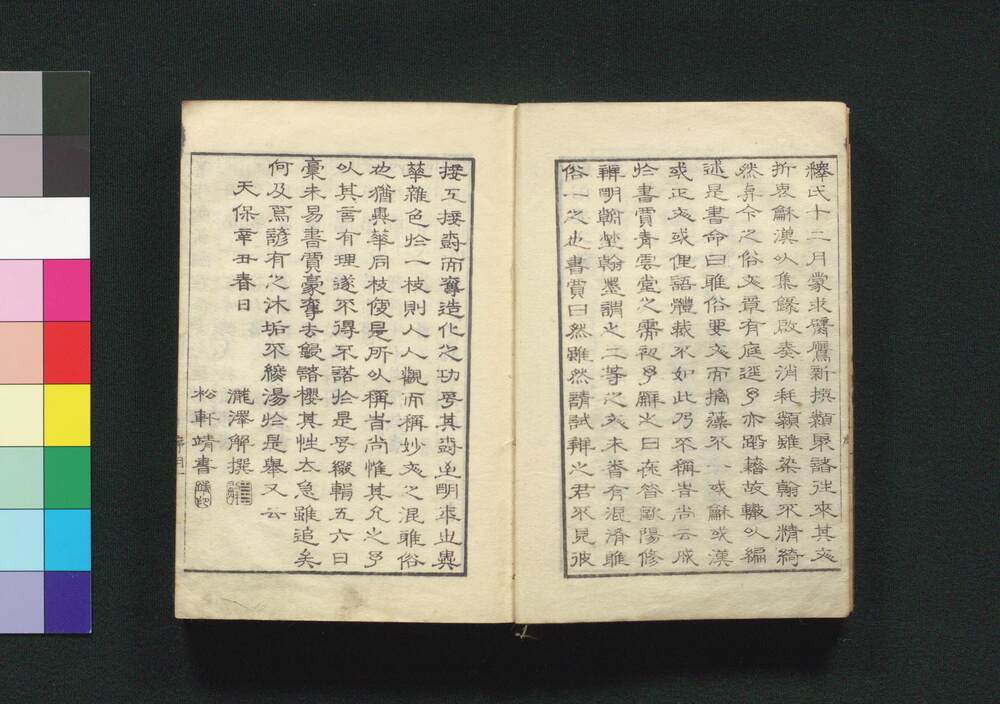 釋氏十二月蒙求臂鷹新撰類聚諸往來其文
折衷龢漢以集錄啟奏消耗纇雖染翰不精綺
然弃今之俗文章有庭逕乎亦踏藉故轍以編
述是書命曰雅俗要文而摛藻不一或龢或漢
或正文或俚語體裁不如此乃不稱皆尚云成
於書賈青雲堂之需初予辭之曰在昔歐陽修
辨明翰埜翰墨謂之二等之文未嘗有混淆雅
俗一之也書賈曰然雖然請試辯之君不見彼
接工接尌而奪造化之功乎其尌逆朙年也異
華雜色於一枝則人人觀而稱妙文之混雅俗
也猶異華同枝夋是所以稱皆尚惟其允之乎
以其言有理遂不得不諾於是乎綴輯五六日
稾未易書賈豪奪去鏝諸櫻其性太急雖追矣
何及焉諺有之沐垢不綾湯於是舉又云
天保辛丑春日
瀧澤解撰
松軒靖書